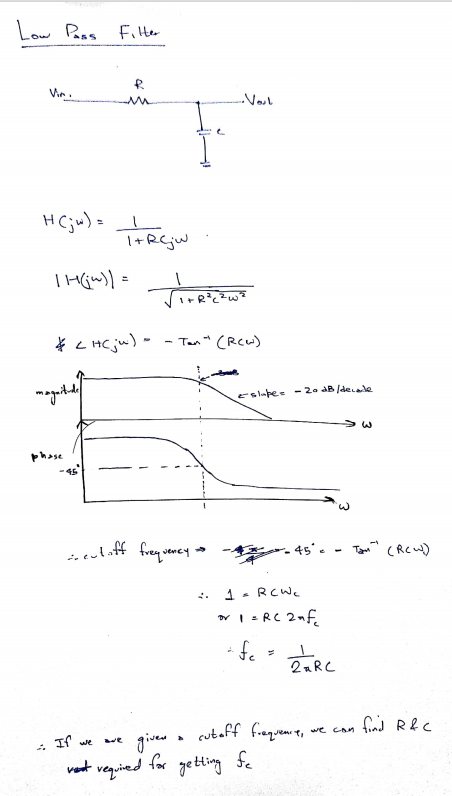 Low Pass Filter
R
Vin.
Vout
c
H(jω) = 1 / 1+RCjω
|H(jω)| = 1 / √1+R²C²ω²
∠H(jω) = - Tan⁻¹ (RCω)
magnitude
← slope = -20 dB/decade
ω
phase
-45°
ω
∴ cutoff frequency ⇒ -45° = - Tan⁻¹ (RCω)
∴ 1 = RCωc
or 1 = RC 2πfc
∴ fc = 1 / 2πRC
∴ If we are given a cutoff frequency, we can find R & C
required for getting fc